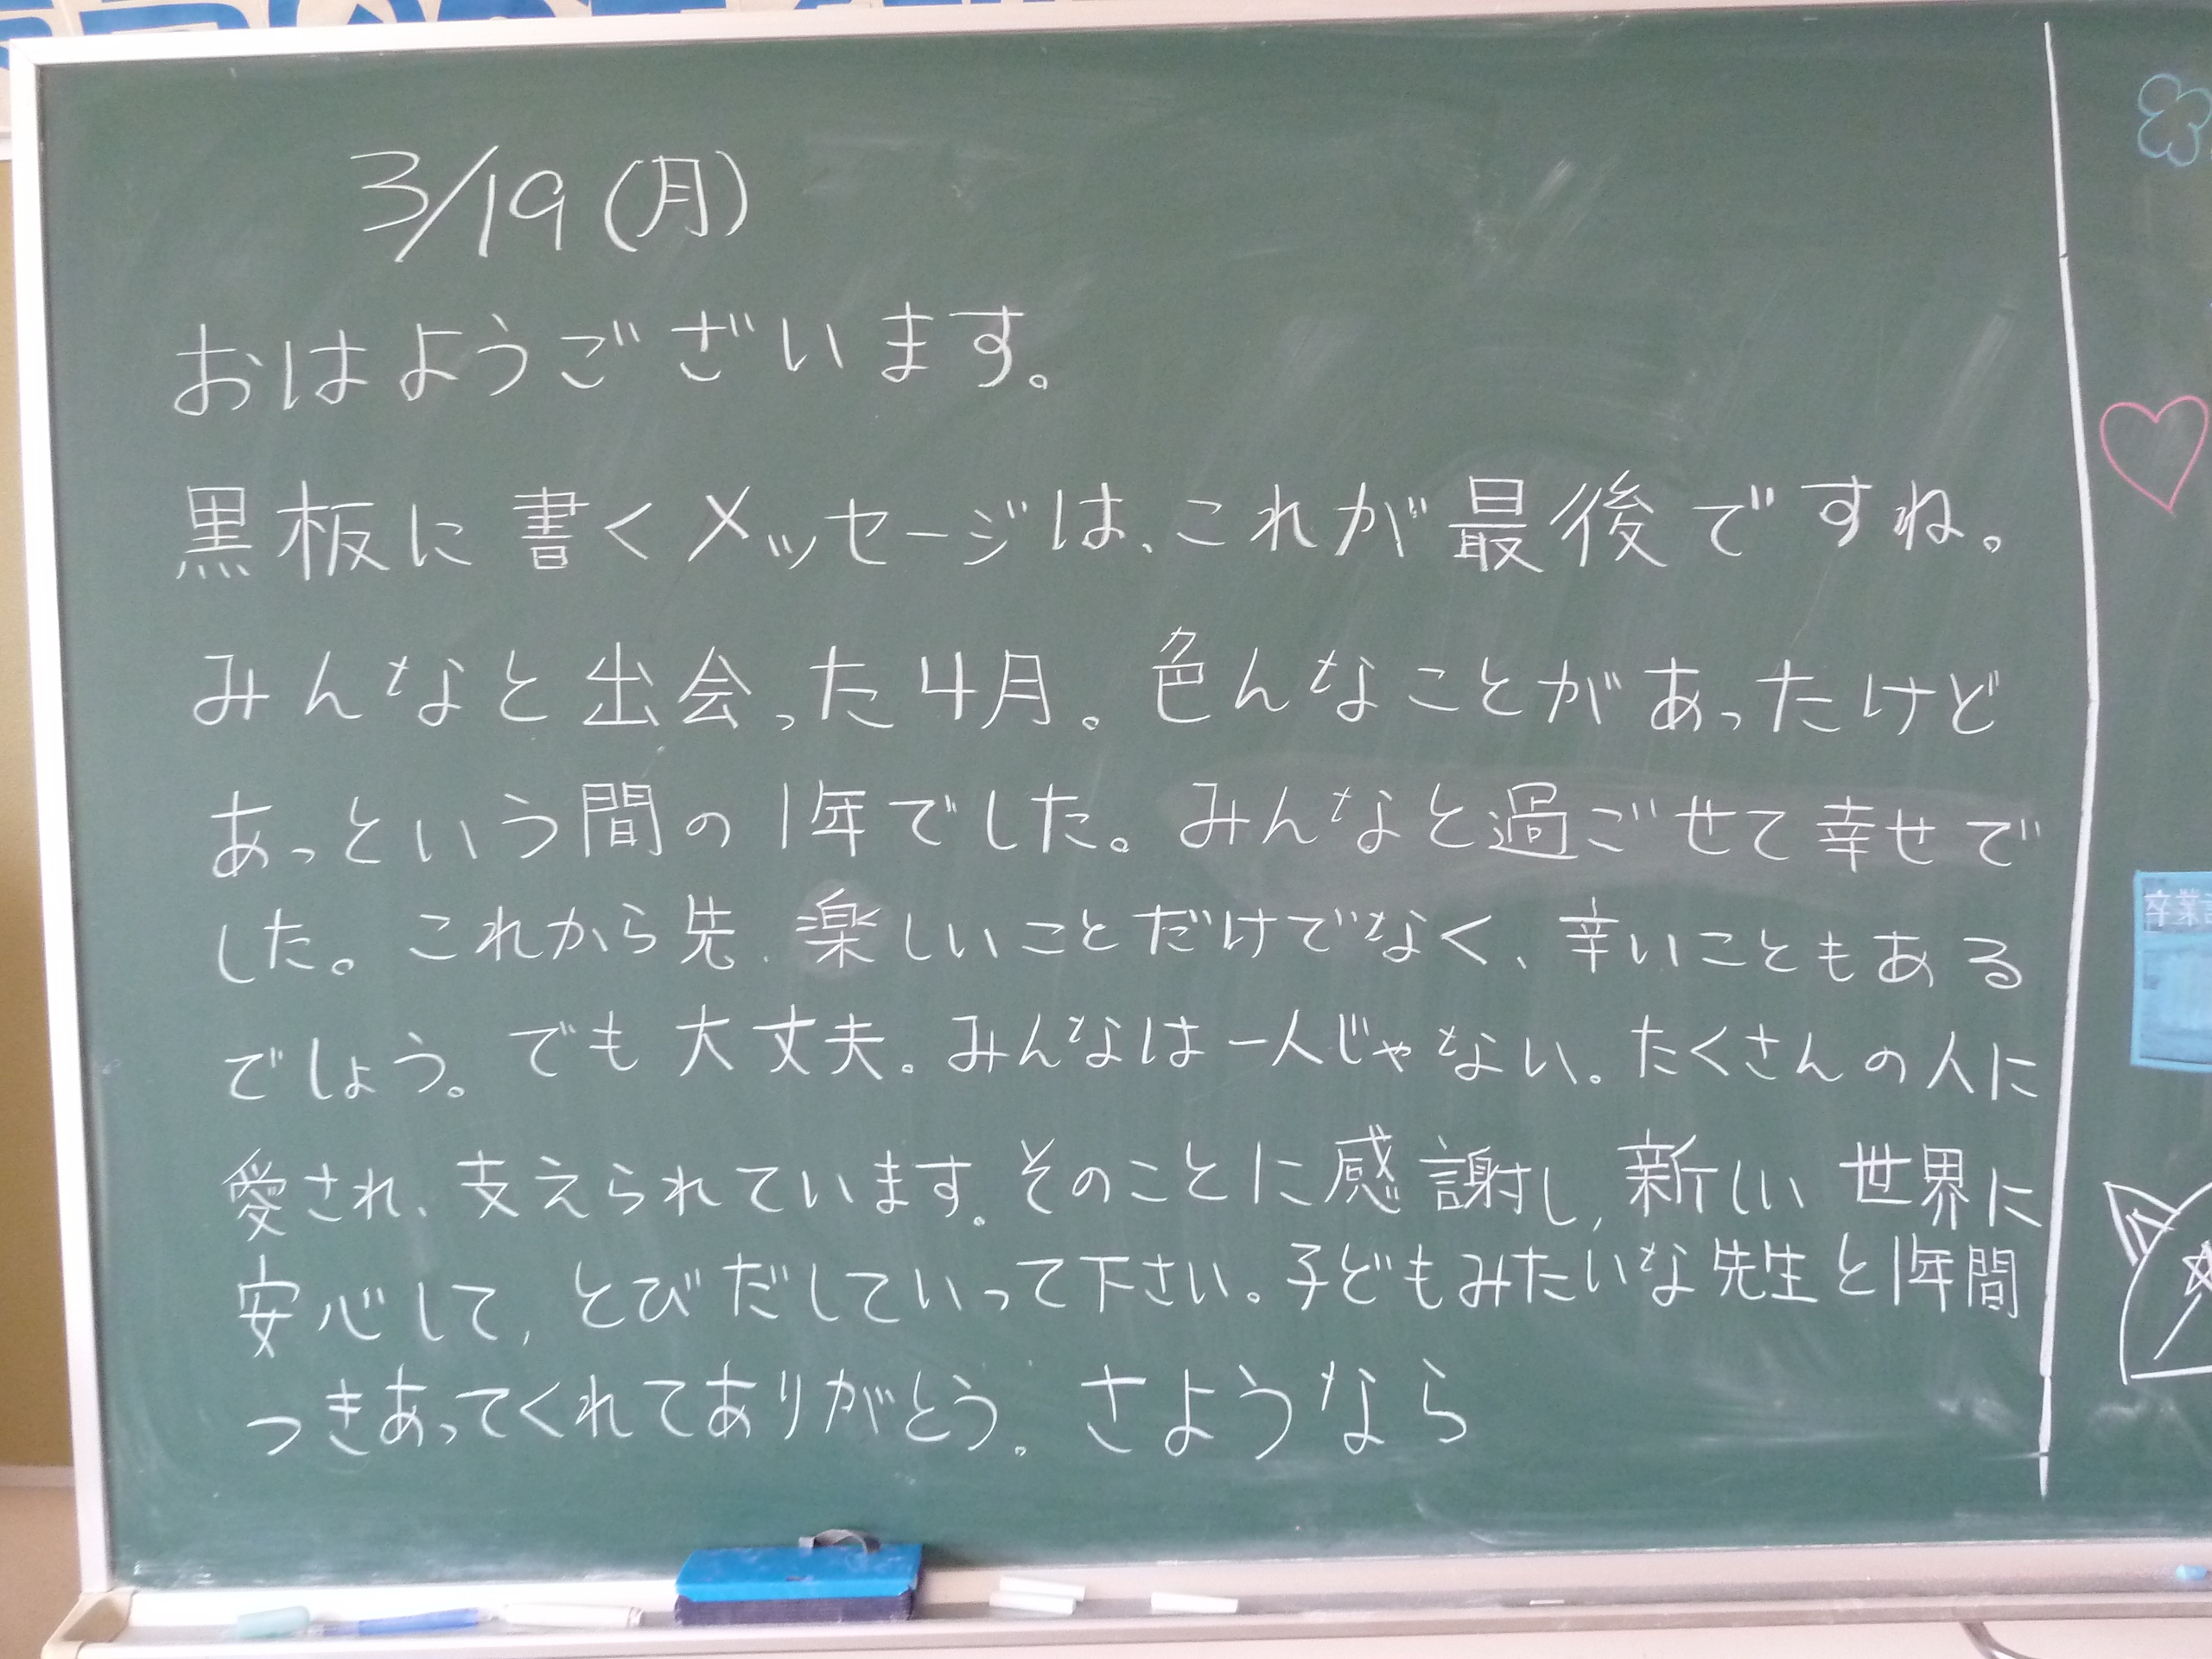 3/19(月)
おはようございます。
黒板に書くメッセージは、これが最後ですね。
みんなと出会った4月。色んなことがあったけど
あっという間の1年でした。みんなと過ごせて幸せで
した。これから先、楽しいことだけでなく、辛いこともある
でしょう。でも大丈夫。みんなは一人じゃない。たくさんの人に
愛され、支えられています。そのことに感謝し、新しい世界に
安心して、とびだしていって下さい。子どもみたいな先生と1年間
つきあってくれてありがとう。さようなら
卒業